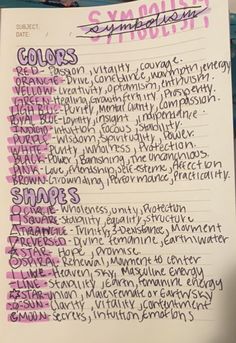 SUBJECT:
SYMBOLISM
symbolism
DATE: / /
COLORS
RED- Passion, vitality, courage.
ORANGE- Drive, Confidence, warmth, energy
YELLOW- Creativity, Optimism, enthusim.
GREEN- Healing, Growth, Fertility, Prosperity.
BLUE- Purity, Mental Clarity, Compassion.
ROYAL BLUE- Loyalty, insight, independence.
INDIGO- Intuition, Focus, Stability.
PURPLE- Wisdom, Spirituality, Power.
WHITE- Purity, Wholness, Protection.
BLACK- Power, Banishing, the Unconcious
PINK- Love, Friendship, Self-esteme, Affection
BROWN- Grounding, Performance, Practicality.
SHAPES
CIRCLE- Wholeness, unity, Protection
SQUARE- Stability, equality, structure
TRIANGLE- Trinity, 3-Existance, Movment
REVERSED- Divine femanine, Earth water
STAR- Hope, Promise.
SPIRAL- Renewal, Movment to center
LINE- Heaven, sky, Masculine Energy
-LINE- Stability, Earth, femanine energy
STAR- Union, Male Female or Earth/Sky
SUN- Clarity, Vitality, contentment
MOON- Secrets, Intuition, Emotions